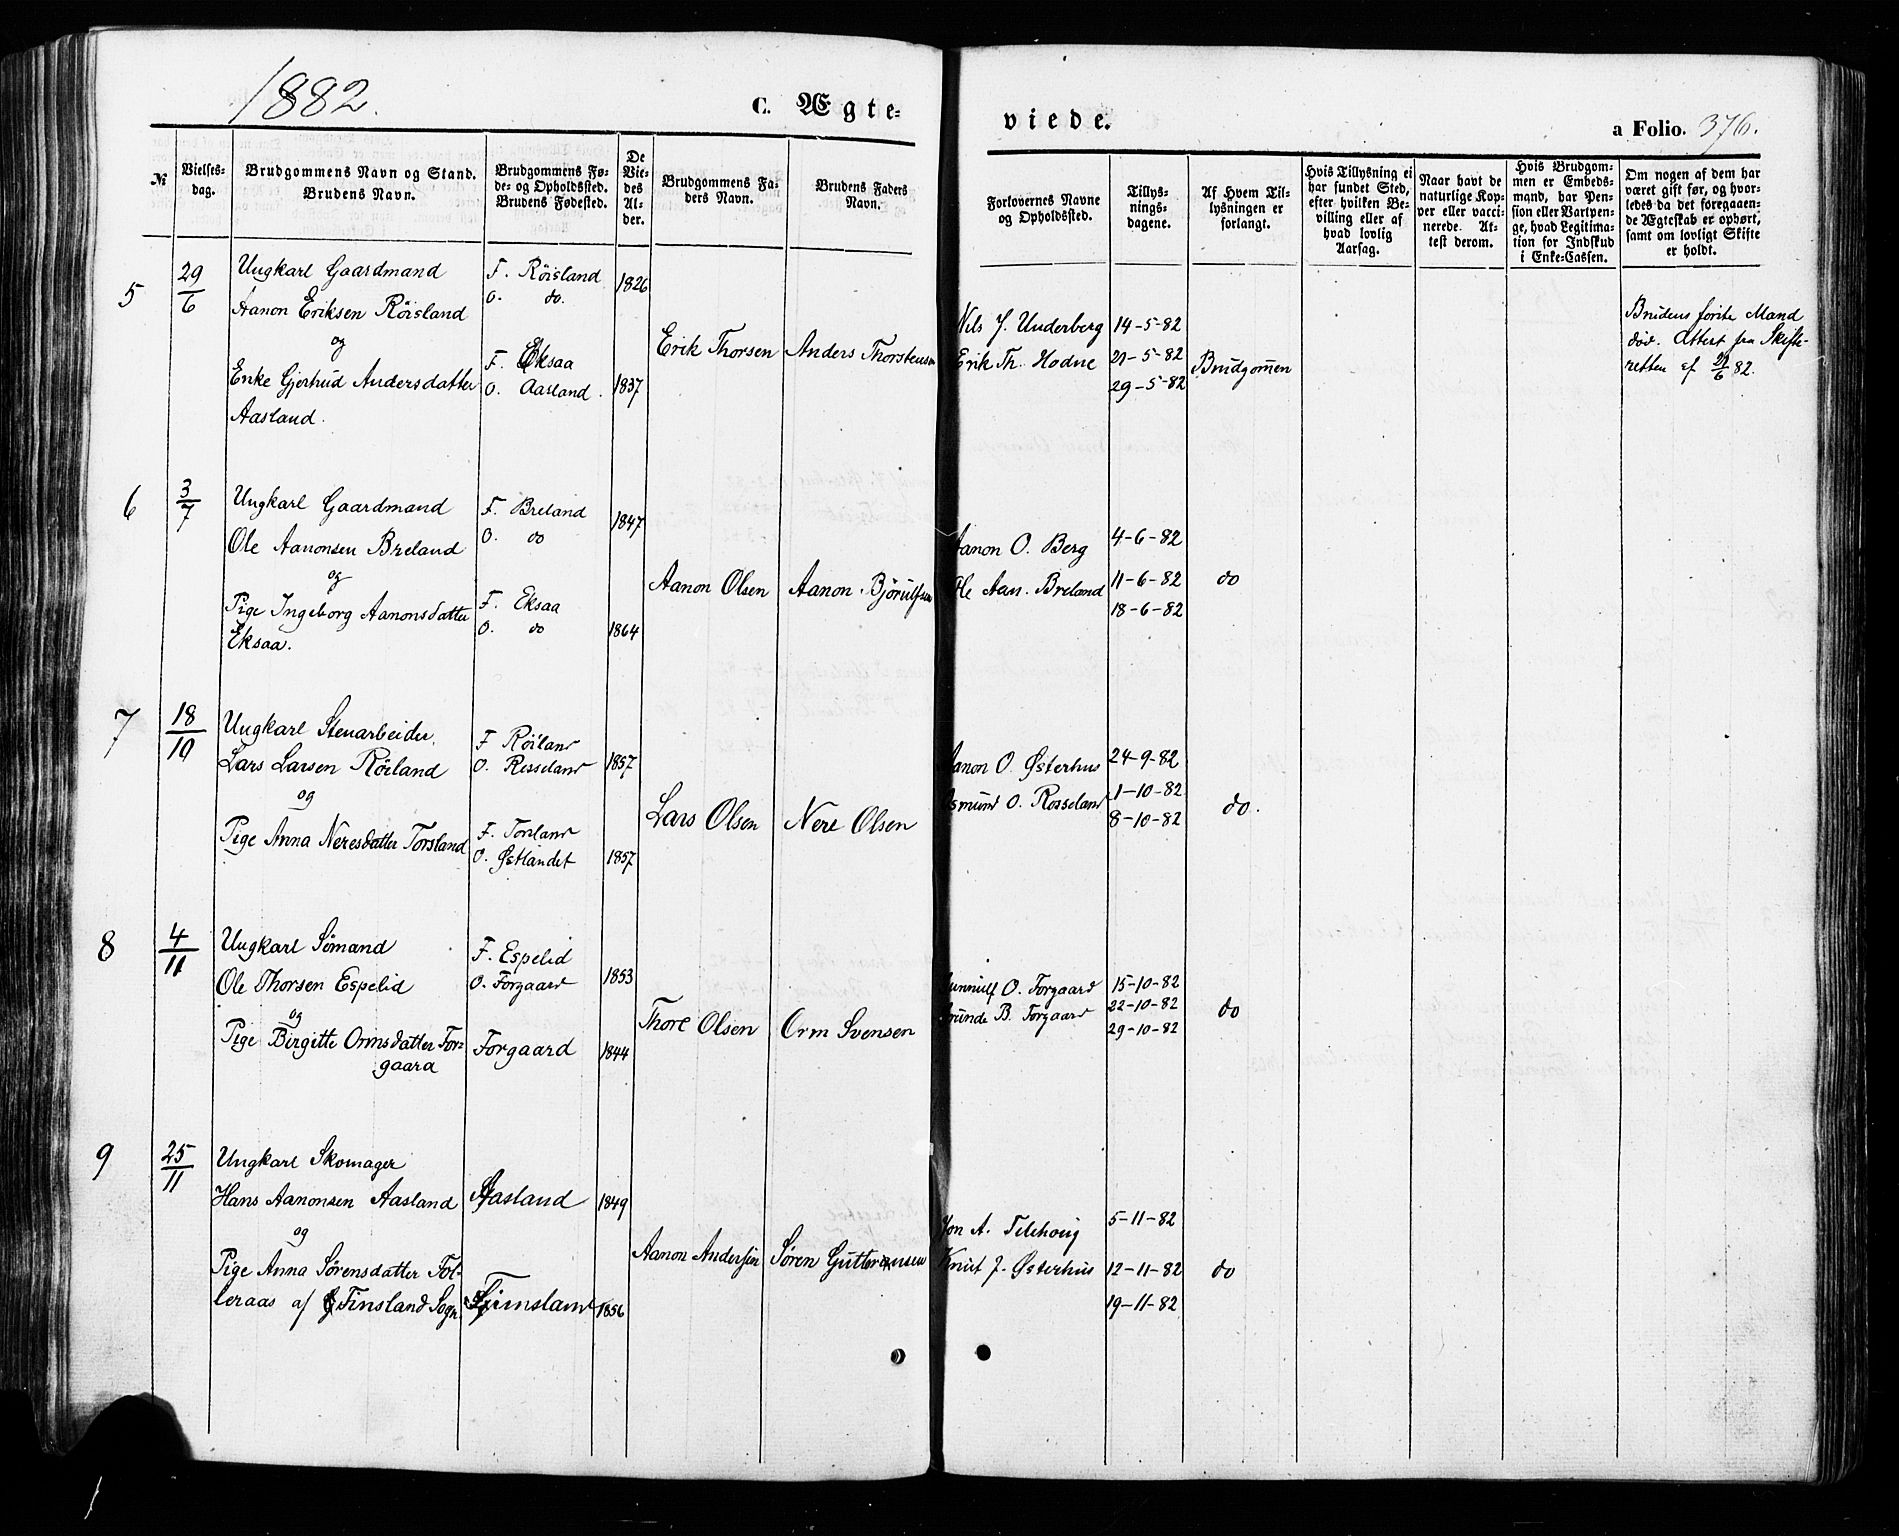 1882.
C. Ægte-
viede.
a Folio. 376.
№
Vielses-
dag.
Brudgommens Navn og Stand.
Brudens Navn.
Brudgommens Fø-
de- og Opholdssted.
Brudens Fødested.
De
Vie-
des
Al-
der.
Brudgommens Fa-
ders Navn.
Brudens Faders
Navn.
Forlovernes Navne
og Opholdssted.
Tillys-
nings-
dagene.
Af Hvem Til-
lysningen er
forlangt.
Hvis Tillysning ei
har fundet Sted,
efter hvilken Be-
villing eller af
hvad lovlig
Aarsag.
Naar havt de
naturlige Kop-
per eller vacci-
nerede. At-
test derom.
Hvis Brudgom-
men er Embeds-
mand, har Pen-
sion eller Vartpen-
ge, hvad Legitima-
tion for Indskud
i Enke-Cassen.
Om nogen af dem har
været gift før, og hvor-
ledes da det foregaaen-
de Ægteskab er ophørt,
samt om lovligt Skifte
er holdt.
5
29/6
Ungkarl Gaardmand
Aanon Eriksen Röisland
og
Enke Gjerthud Andersdatter
Aasland.
F. Röisland
O. do.
F. Eksaa
O. Aasland.
1826
1837
Erik Thorsen
Anders Thorstensen
Nils J. Underberg
Erik Th. Hodne
14-5-82
21-5-82
29-5-82
Brudgommen
Brudens förste Mand
död. Attest fra Skifte-
retten af 21/6 82.
6
3/7
Ungkarl Gaardmand
Ole Aanonsen Breland
og
Pige Ingeborg Aanonsdatter
Eksaa.
F. Breland
O. do
F. Eksaa
O. do
1847
1864
Aanon Olsen
Aanon Björulfsen
Aanon O. Berg
Ole Aan. Breland
4-6-82
11-6-82
18-6-82
do
7
18/10
Ungkarl Stenarbeider
Lars Larsen Röiland
og
Pige Anna Neresdatter Torsland
F. Röiland
O. Rosseland
F. Torsland
O. Østlandet
1857
1857
Lars Olsen
Nere Olsen
Aanon O. Østerhus
Osmund O. Rosseland
24-9-82
1-10-82
8-10-82
do.
8
4/11
Ungkarl Sömand
Ole Thorsen Espelid
og
Pige Birgitte Ormsdatter For-
gaard
F. Espelid
O. Forgaard
Forgaard
1853
1844
Thore Olsen
Orm Svensen
Gunnulf O. Forgaard
Grunde B. Forgaard
15-10-82
22-10-82
29-10-82
do
9
25/11
Ungkarl Skomager
Hans Aanonsen Aasland
og
Pige Anna Sörensdatter Fol-
leraas af Finsland Sogn
Aasland
Finsland
1849
1856
Aanon Andersen
Sören Guttormsen
Jon A. Telehoug
Knut J. Østerhus
5-11-82
12-11-82
19-11-82
do